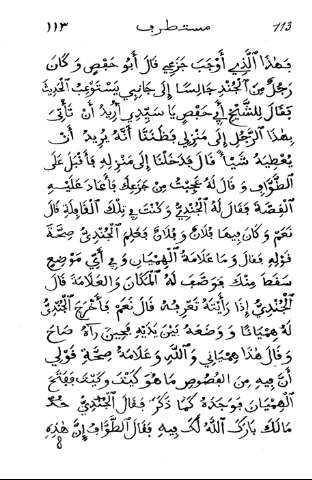 ١١٣ مستطرف 113
بهذا الذي أوجب جزعي قال أبو حفص وكان
رجل من الجند جالسا إلى جانبي يستوعب الحديث
فقال للشيخ أبي حفص يا سيدي أريد أن تأتي
بهذا الرجل إلى منزلي فظننا أنه يريد أن
يعطيه شيأ قال فدخلنا إلى منزله فأقبل على
الطواف وقال له عجبت من جزعك فأعاد عليه
القصة فقال له الجندي وكنت في تلك القافلة قال
نعم وكان فيها فلان وفلان فعلم الجندي صحة
قوله فقال وما علامة الهميان وفي أي موضع
سقط منك فوصف له المكان والعلامة قال
الجندي إذا رأيته تعرفه قال نعم فأخرج الجندي
له هميانا ووضعه بين يديه فحين رآه صاح
وقال هذا همياني والله وعلامة صحة قولي
أن فيه من الفصوص ما هو كيت وكيت ففتح
الهميان فوجده كما ذكر فقال الجندي خذ
مالك بارك الله لك فيه فقال الطواف إن هذه